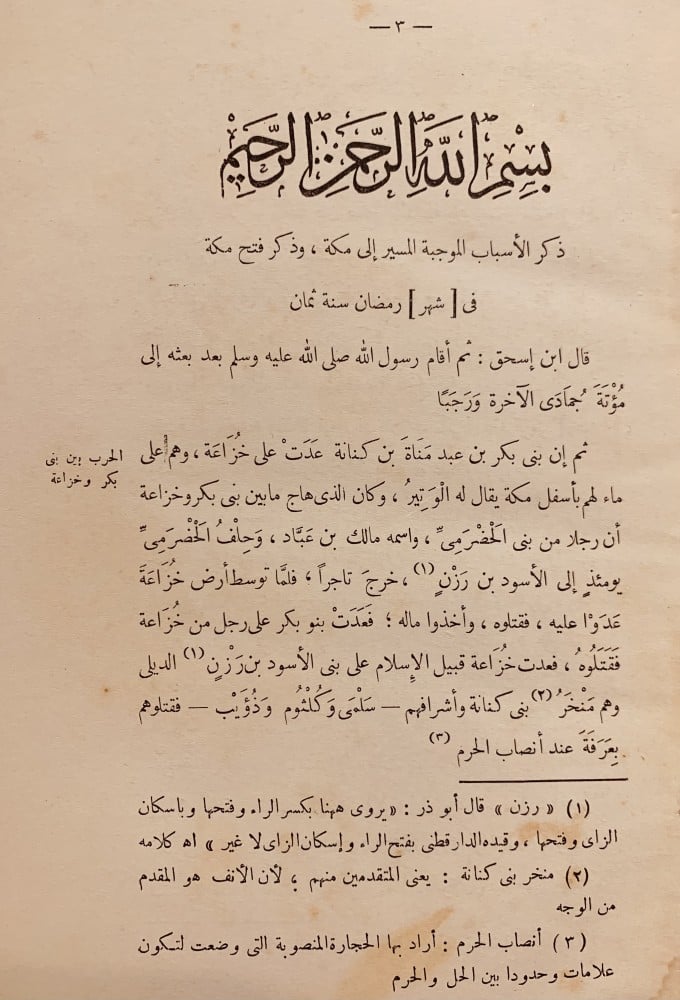 — ٣ —
بِسْمِ اللَّهِ الرَّحْمَٰنِ الرَّحِيمِ
ذكر الأسباب الموجبة المسير إلى مكة ، وذكر فتح مكة
فى [ شهر ] رمضان سنة ثمان
قال ابن إسحق : ثم أقام رسول الله صلى الله عليه وسلم بعد بعثه إلى
مُؤْتَةَ جُمَادَى الآخرة وَرَجَبًا
ثم إن بنى بكر بن عبد مَنَاةَ بن كنانة عَدَتْ على خُزَاعَة ، وهم على
الحرب بين بنى
بكر وخزاعة
ماء لهم بأسفل مكة يقال له الْوَتِيرُ ، وكان الذى هاج مابين بنى بكر وخزاعة
أن رجلا من بنى الْحَضْرَمِىِّ ، واسمه مالك بن عَبَّاد ، وَحِلْفُ الْحَضْرَمِىِّ
يومئذٍ إلى الأسود بن رَزْنٍ (١) ، خرجَ تاجراً ؛ فلمَّا توسط أرض خُزَاعَةَ
عَدَوْا عليه ، فقتلوه ، وأخذوا ماله ؛ فَعَدَتْ بنو بكر على رجل من خُزَاعة
فَقَتَلُوهُ ، فعدت خُزَاعة قبيل الإِسلام على بنى الأسود بن رَزْنٍ (١) الديلى
وهم مَنْخَرُ (٢) بنى كنانة وأشرافهم — سَلْمَى وَكُلْثُوم وَذُؤَيْب — فقتلوهم
بِعَرَفَةَ عند أنصاب الحرم (٣)
(١) « رزن » قال أبو ذر : « يروى ههنا بكسر الراء وفتحها وباسكان
الزاى وفتحها ، وقيده الدارقطنى بفتح الراء وإسكان الزاى لا غير » اه كلامه
(٢) منخر بنى كنانة : يعنى المتقدمين منهم ؛ لأن الأنف هو المقدم
من الوجه
(٣) أنصاب الحرم : أراد بها الحجارة المنصوبة التى وضعت لتكون
علامات وحدودا بين الحل والحرم